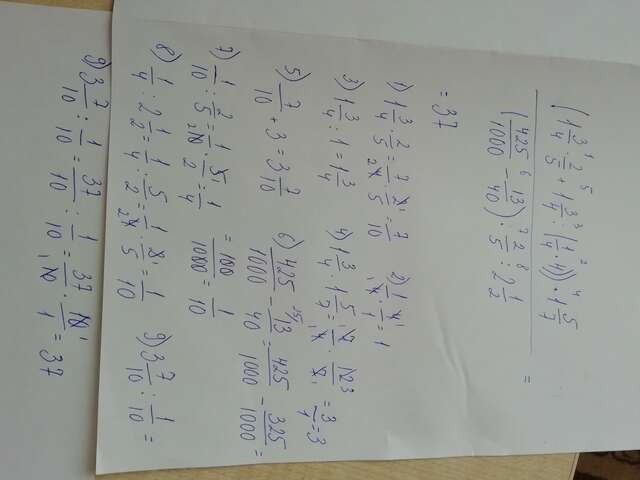 (1 3/4 · 2/5 + 1 3/4 : (1/4 · 4)) · 1 5/7
(425/1000 - 13/40) : 2/5 : 2 1/2 =
= 37
1) 1 3/4 · 2/5 = 7/4 · 2/5 = 7/10 2) 1/4 · 4/1 = 1
3) 1 3/4 : 1 = 1 3/4 4) 1 3/4 · 1 5/7 = 7/4 · 12/7 = 3/1 = 3
5) 7/10 + 3 = 3 7/10 6) 425/1000 - 13/40 = 425/1000 - 325/1000 =
= 100/1000 = 1/10
7) 1/10 : 2/5 = 1/10 · 5/2 = 1/4
8) 1/4 : 2 1/2 = 1/4 : 5/2 = 1/4 · 2/5 = 1/10 9) 3 7/10 : 1/10 =
9) 3 7/10 : 1/10 = 37/10 : 1/10 = 37/10 · 10/1 = 37